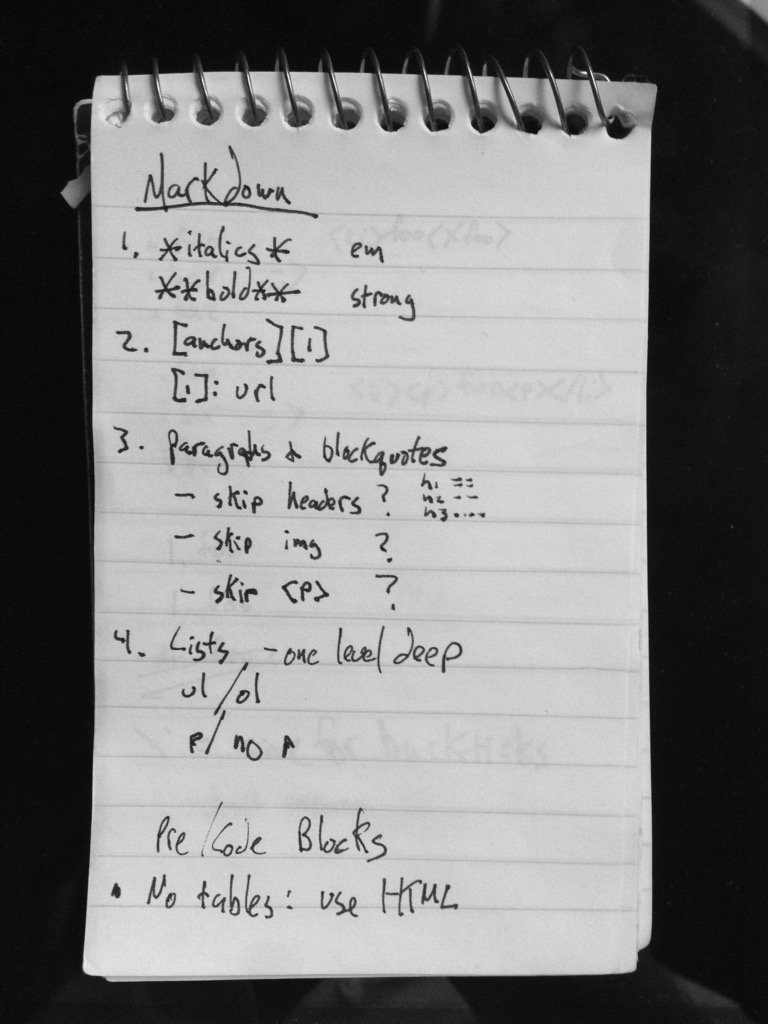 Markdown
1. *italics* em
**bold** strong
2. [anchors][1]
[1]: url
3. paragraphs & blockquotes
- skip headers ? h1 ==
h2 --
h3....
- skip img ?
- skip <p> ?
4. Lists - one level deep
ul/ol
p/no p
Pre/Code Blocks
• No tables: use HTML